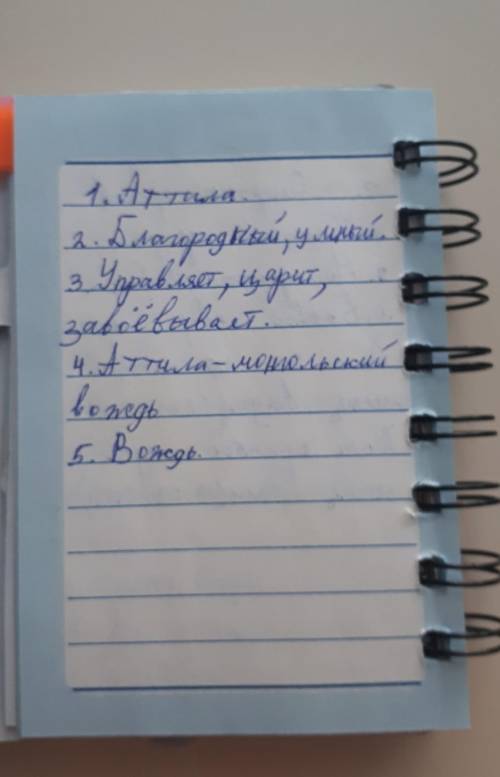 1. Аттила.
2. Благородный, умный.
3. Управляет, царит,
завоёвывает.
4. Аттила - монгольский
вождь
5. Вождь.